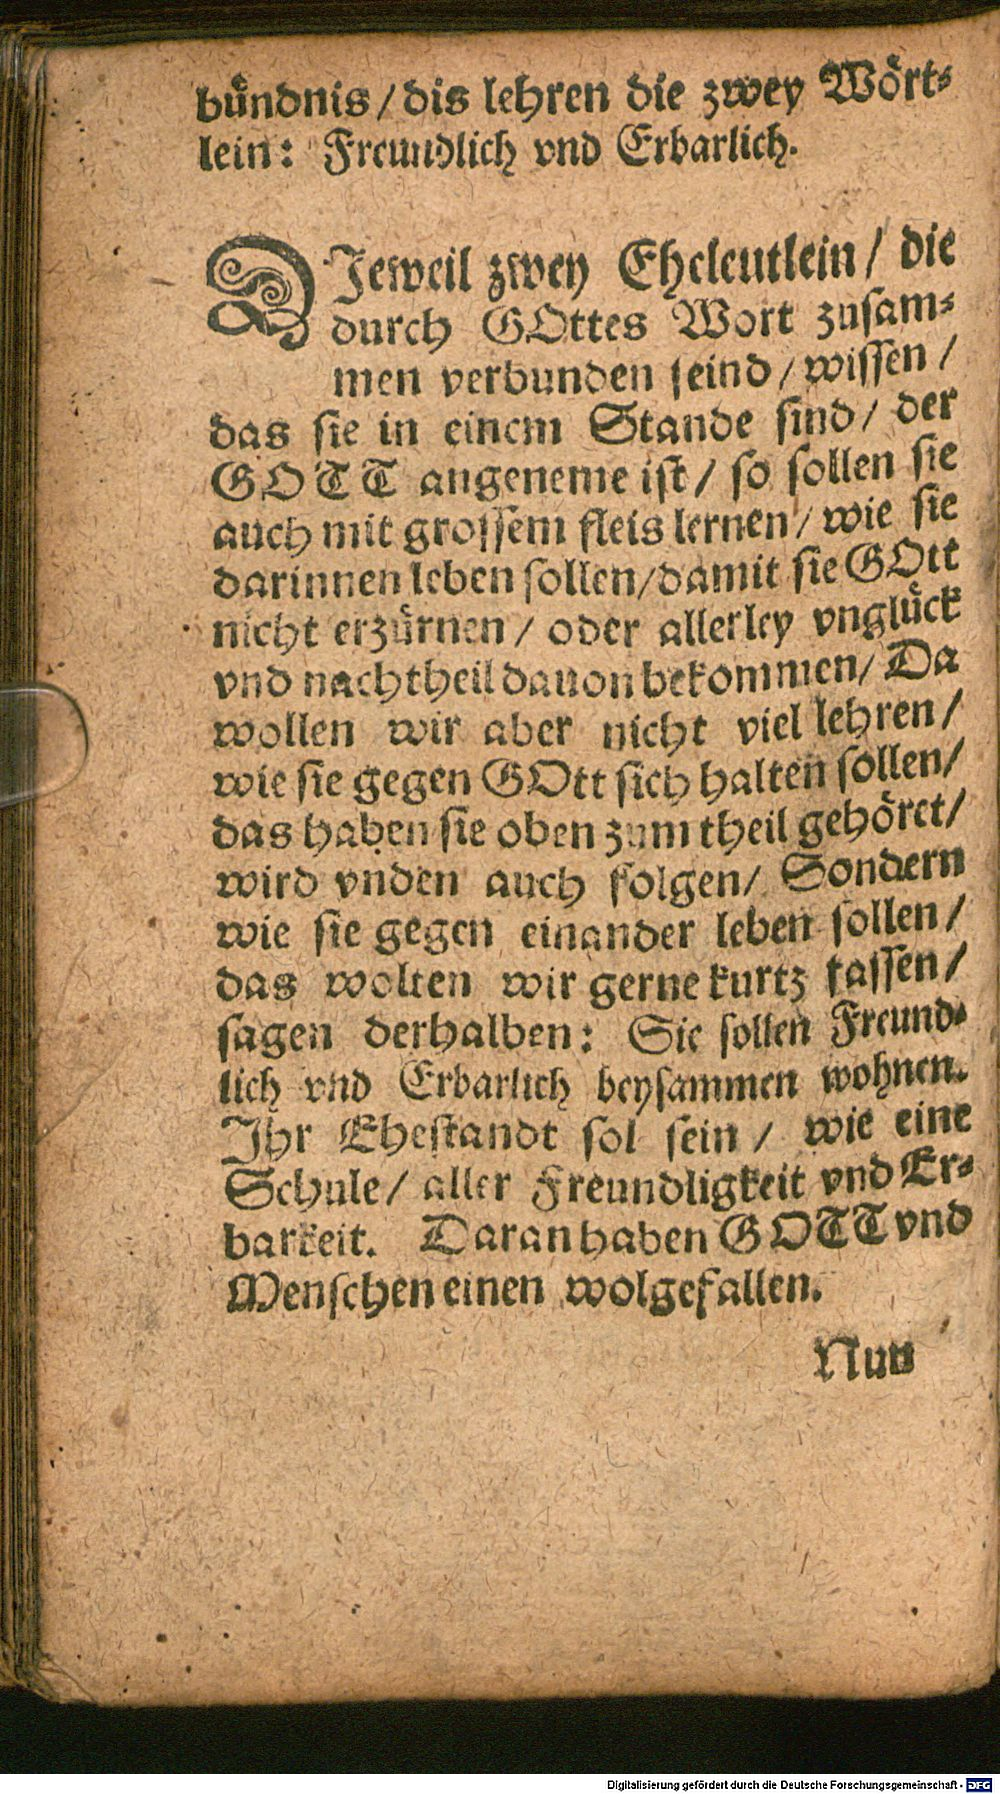 bündnis / dis lehren die zwey Wört-
lein: Freundlich vnd Erbarlich.
DJeweil zwey Eheleutlein / die
durch GOttes Wort zusam-
men verbunden seind / wissen /
das sie in einem Stande sind / der
GOTT angeneme ist / so sollen sie
auch mit grossem fleis lernen / wie sie
darinnen leben sollen / damit sie GOtt
nicht erzürnen / oder allerley vnglück
vnd nachtheil dauon bekommen / Da
wollen wir aber nicht viel lehren /
wie sie gegen GOtt sich halten sollen /
das haben sie oben zum theil gehöret /
wird vnden auch folgen / Sondern
wie sie gegen einander leben sollen /
das wolten wir gerne kurtz fassen /
sagen derhalben: Sie sollen Freund-
lich vnd Erbarlich beysammen wohnen.
Jhr Ehestandt sol sein / wie eine
Schule / aller Freundligkeit vnd Er-
barkeit. Daran haben GOTT vnd
Menschen einen wolgefallen.
Nun
Digitalisierung gefördert durch die Deutsche Forschungsgemeinschaft - DFG